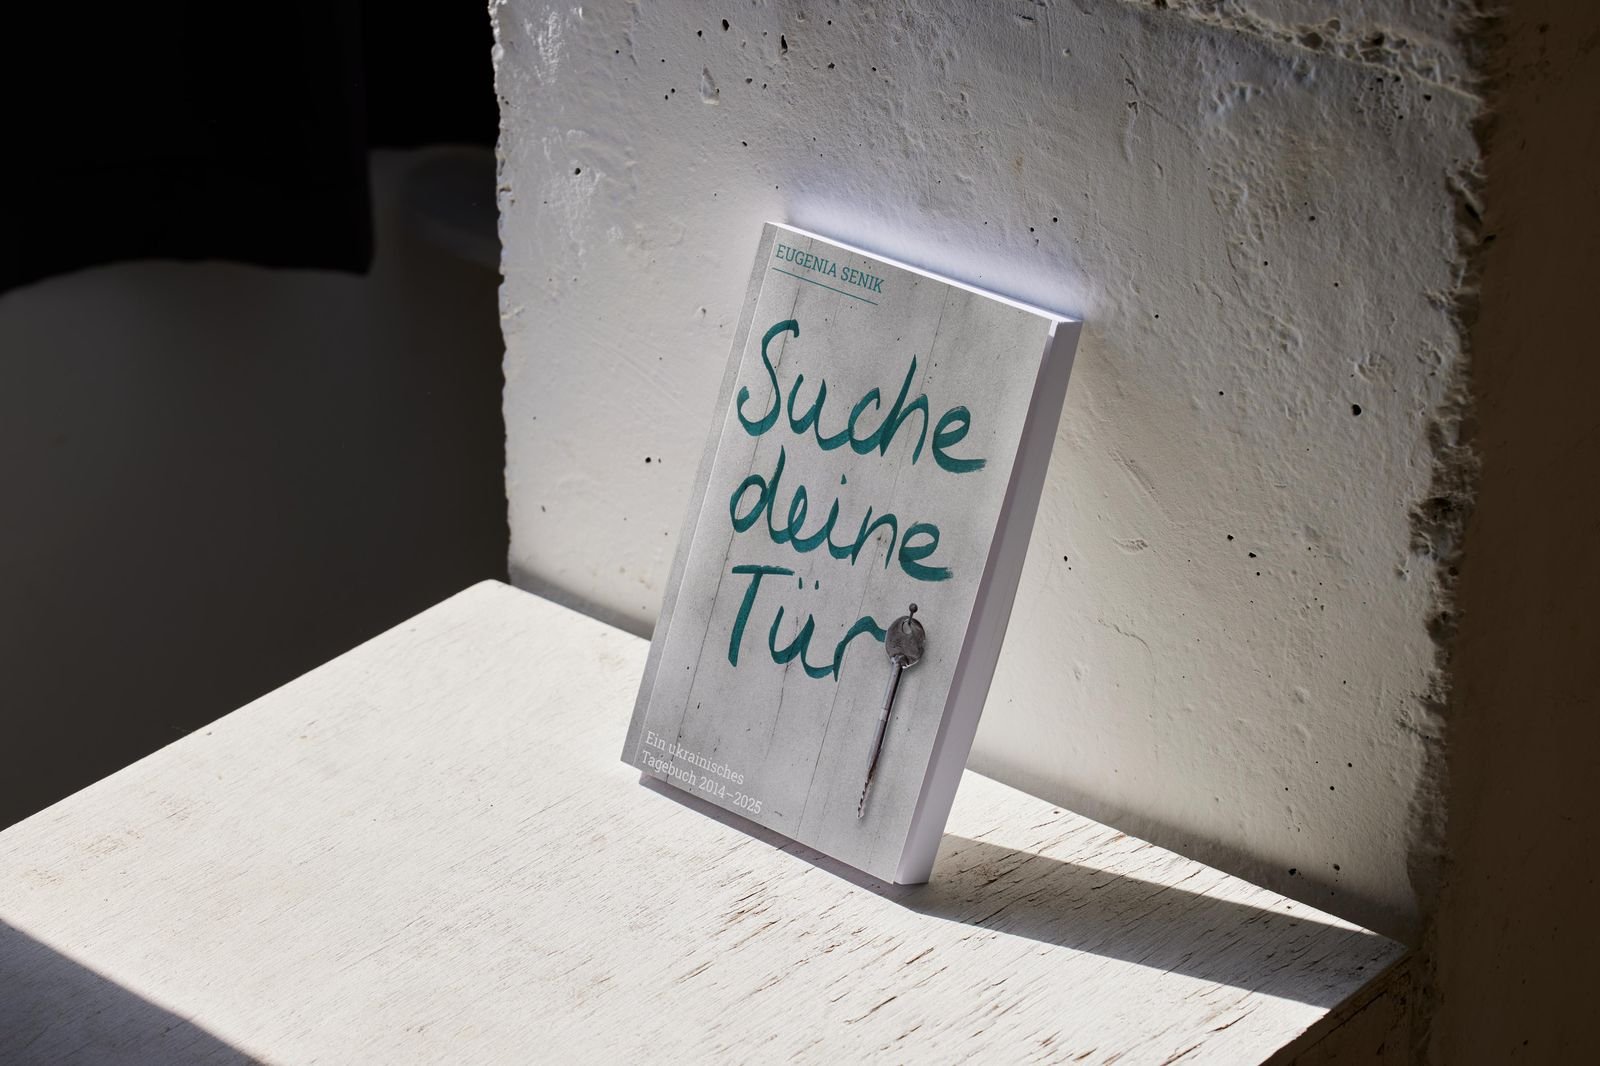 EUGENIA SENIK
Suche
deine
Tür
Ein ukrainisches
Tagebuch 2014–2025